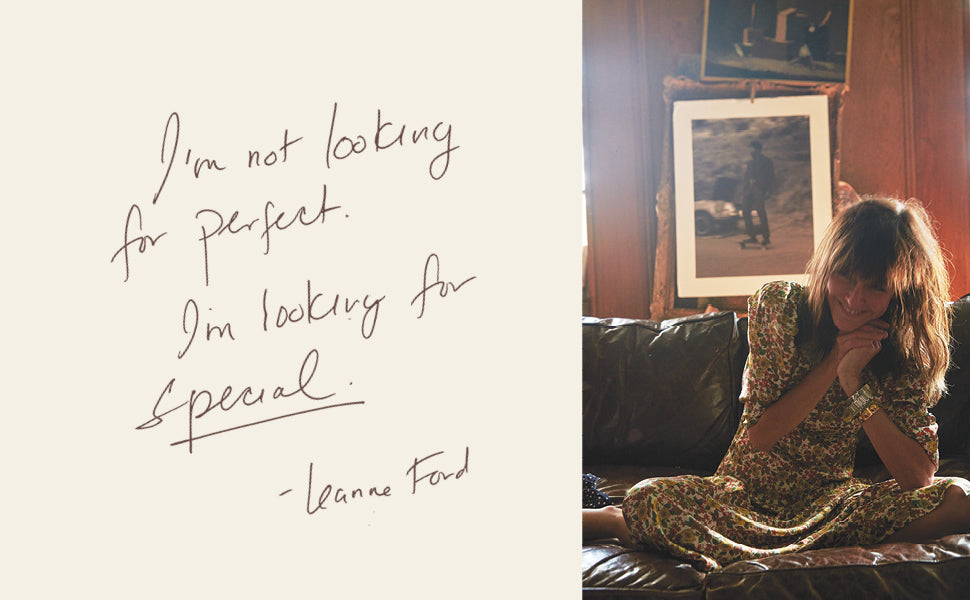 I'm not looking
for perfect.
I'm looking for
special.
- Leanne Ford